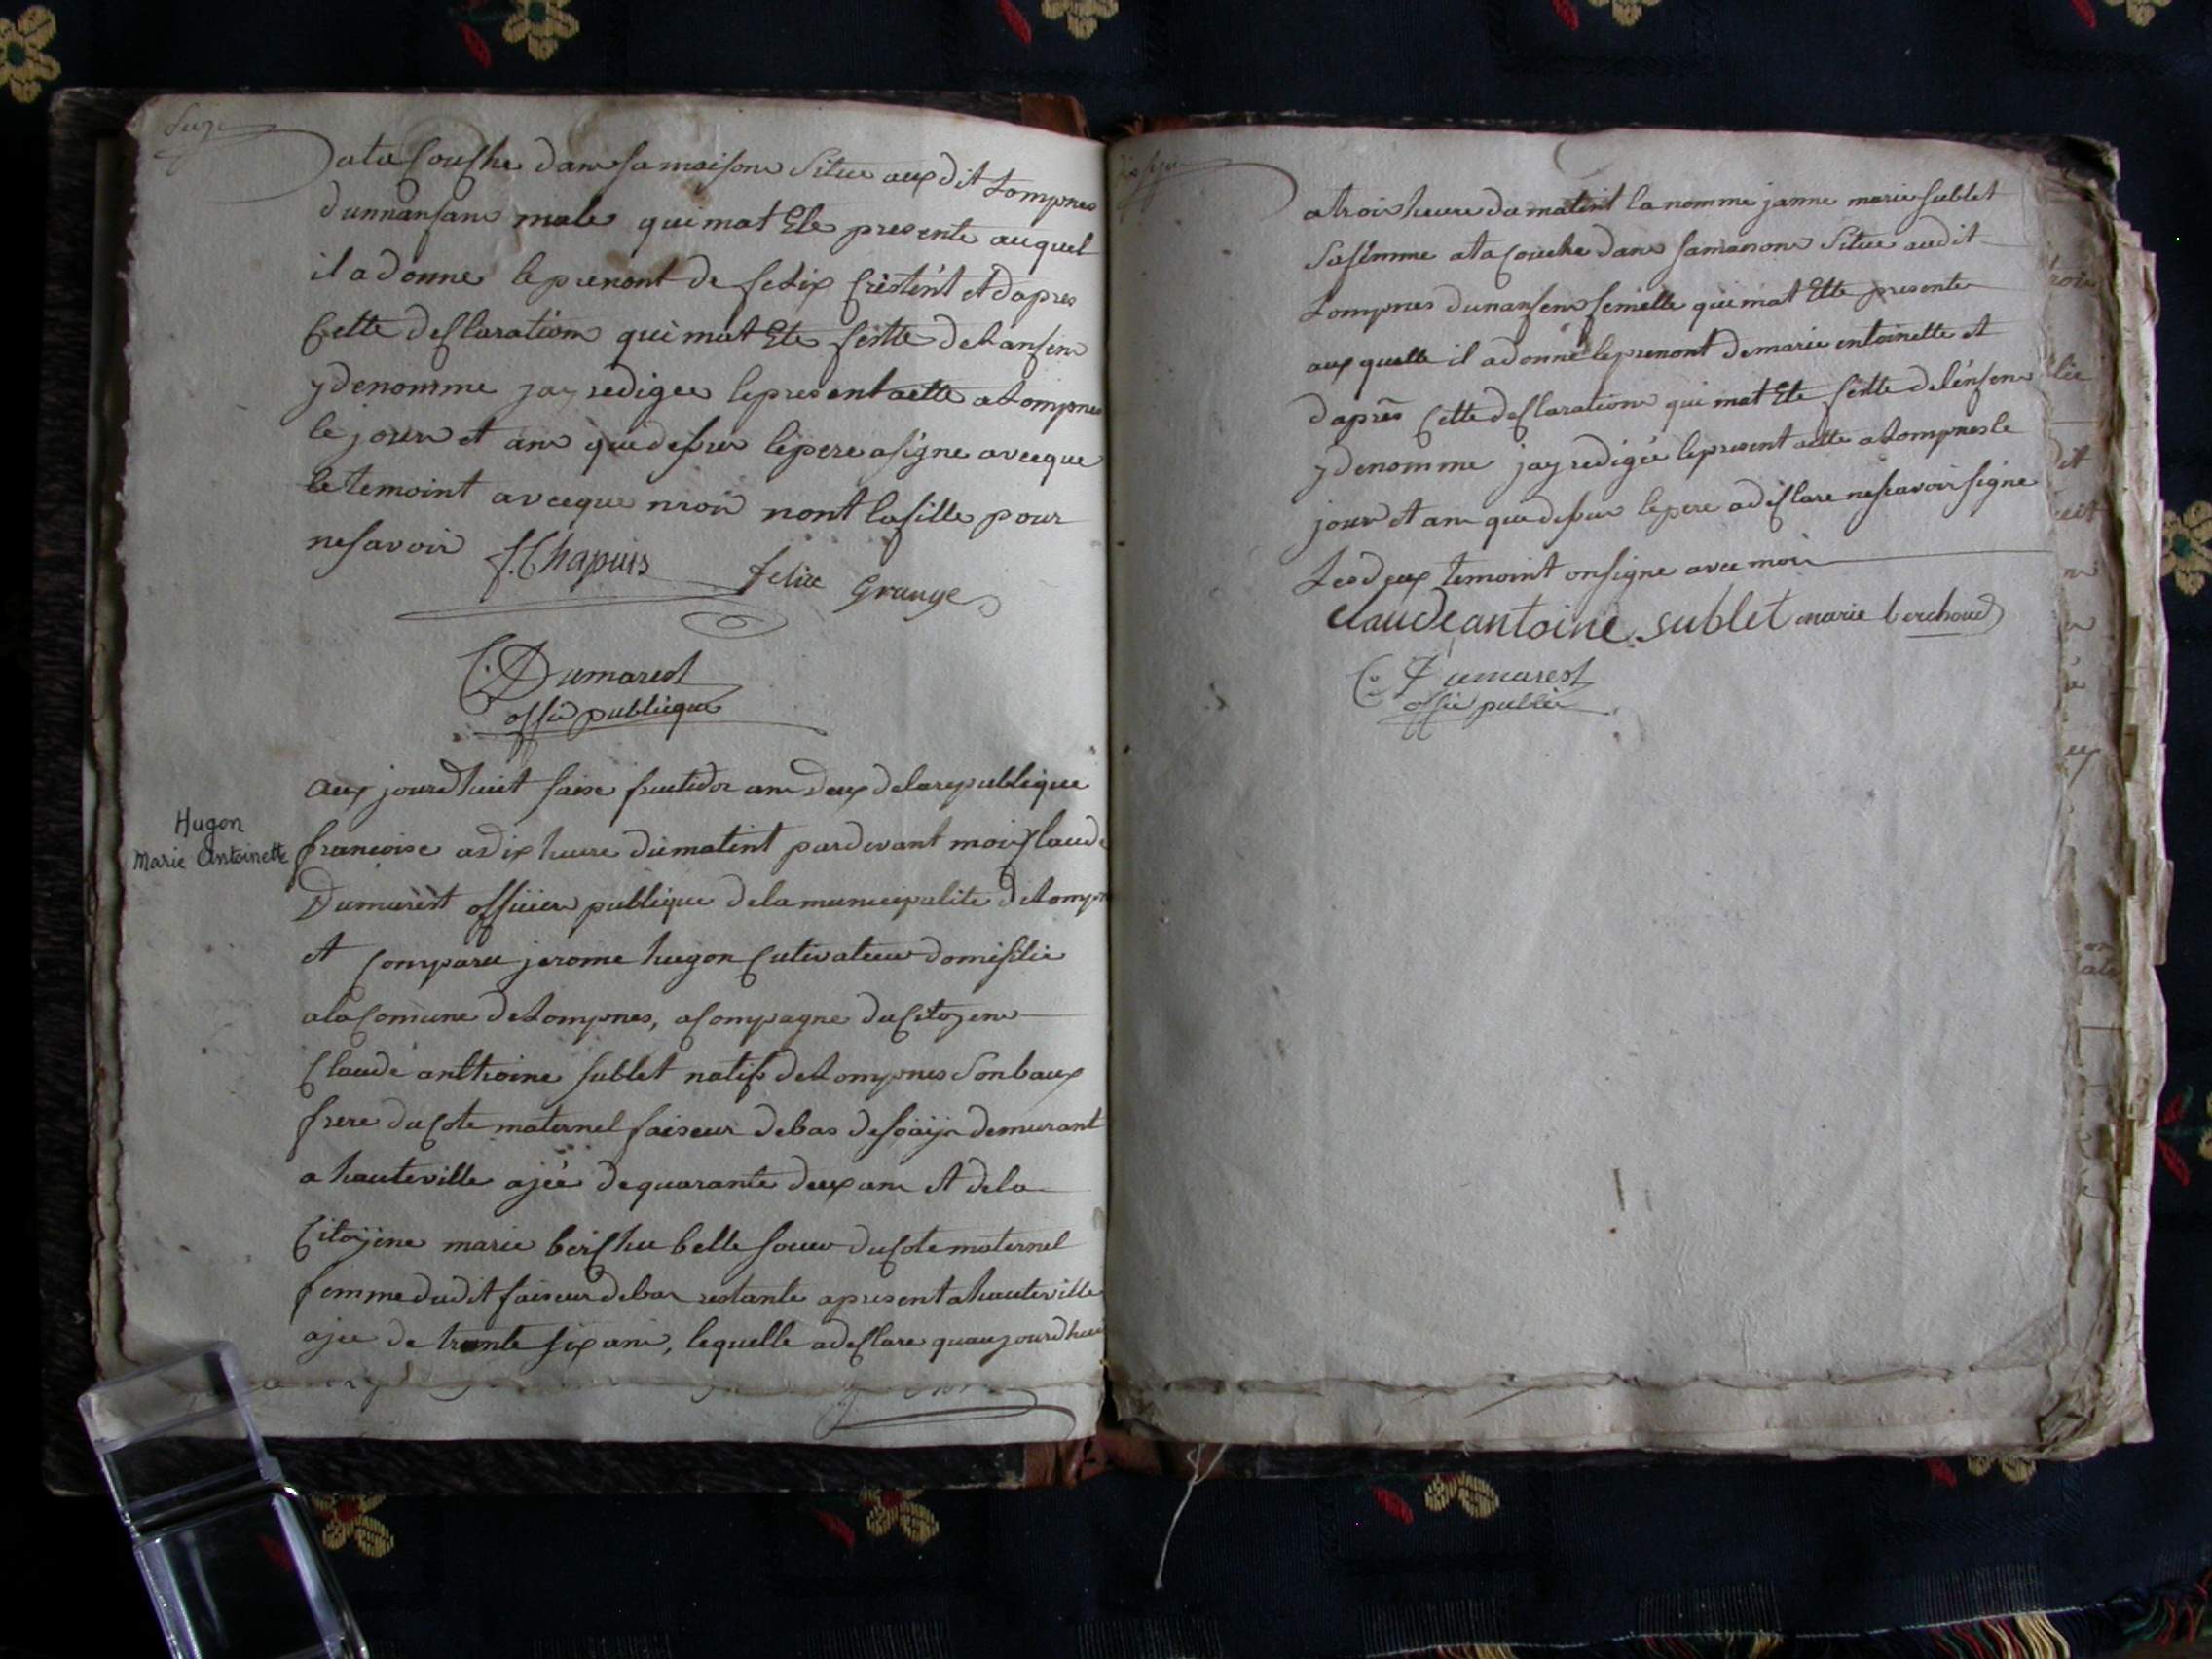 ata Couche dans sa maisone Situe aux dit Lompnes
dunnanfant male qui mat Ete presente auquel
il a donne le prenont de felix Cristint et dapres
Cette desClaration qui mat Ete feitte de Lanfent
y denomme jay redigee le present actte a Lompnes
le jour et ane que desus le pere a signe avecque
le temoint avecque moi nont la fille pour
ne savoir f. Chapuis felix Grange
C. Dumarest
offis publique
Hugon
Marie Antoinette
Aux jourdhuit saise frutidor ane deux de la republique
francoise a dix heure du matint pardevant moi Claude
Dumarest officier publique de la municipalite de Lompnes
et Comparu jerome hugon Cutivateur domisilie
a la Comune de Lompnes, aCompagne du Citoyene
Claude anthoine sublet natif de Lompnes Son baux
frere du Cote maternel faiseur de bas demurant
a hauteville ajee de quarante deux ane et de la
Citoyene marie berChu belle soeur du Cote maternel
femme du dit faiseur de bas restante apresent a hauteville
ajee de trente six ane, lequelle a desClare quaujourdhui
a trois heure du matint la nomme janne marie sublet
Sa femme ata Couche dans sa maisone Situe audit
Lompnes dunanfent femelle qui mat Ette presente
aux quelle il a donne le prenont de marie entoinette et
dapres Cette desClaratione qui mat Ete feitte de lenfent
y denomme jay redigee le present actte a Lompnes le
jour et ane que desus le pere a desClare ne scavoir signe
Les deux temoint on signe avec moi
claude antoine sublet marie berchoud
C. Dumarest
offis public